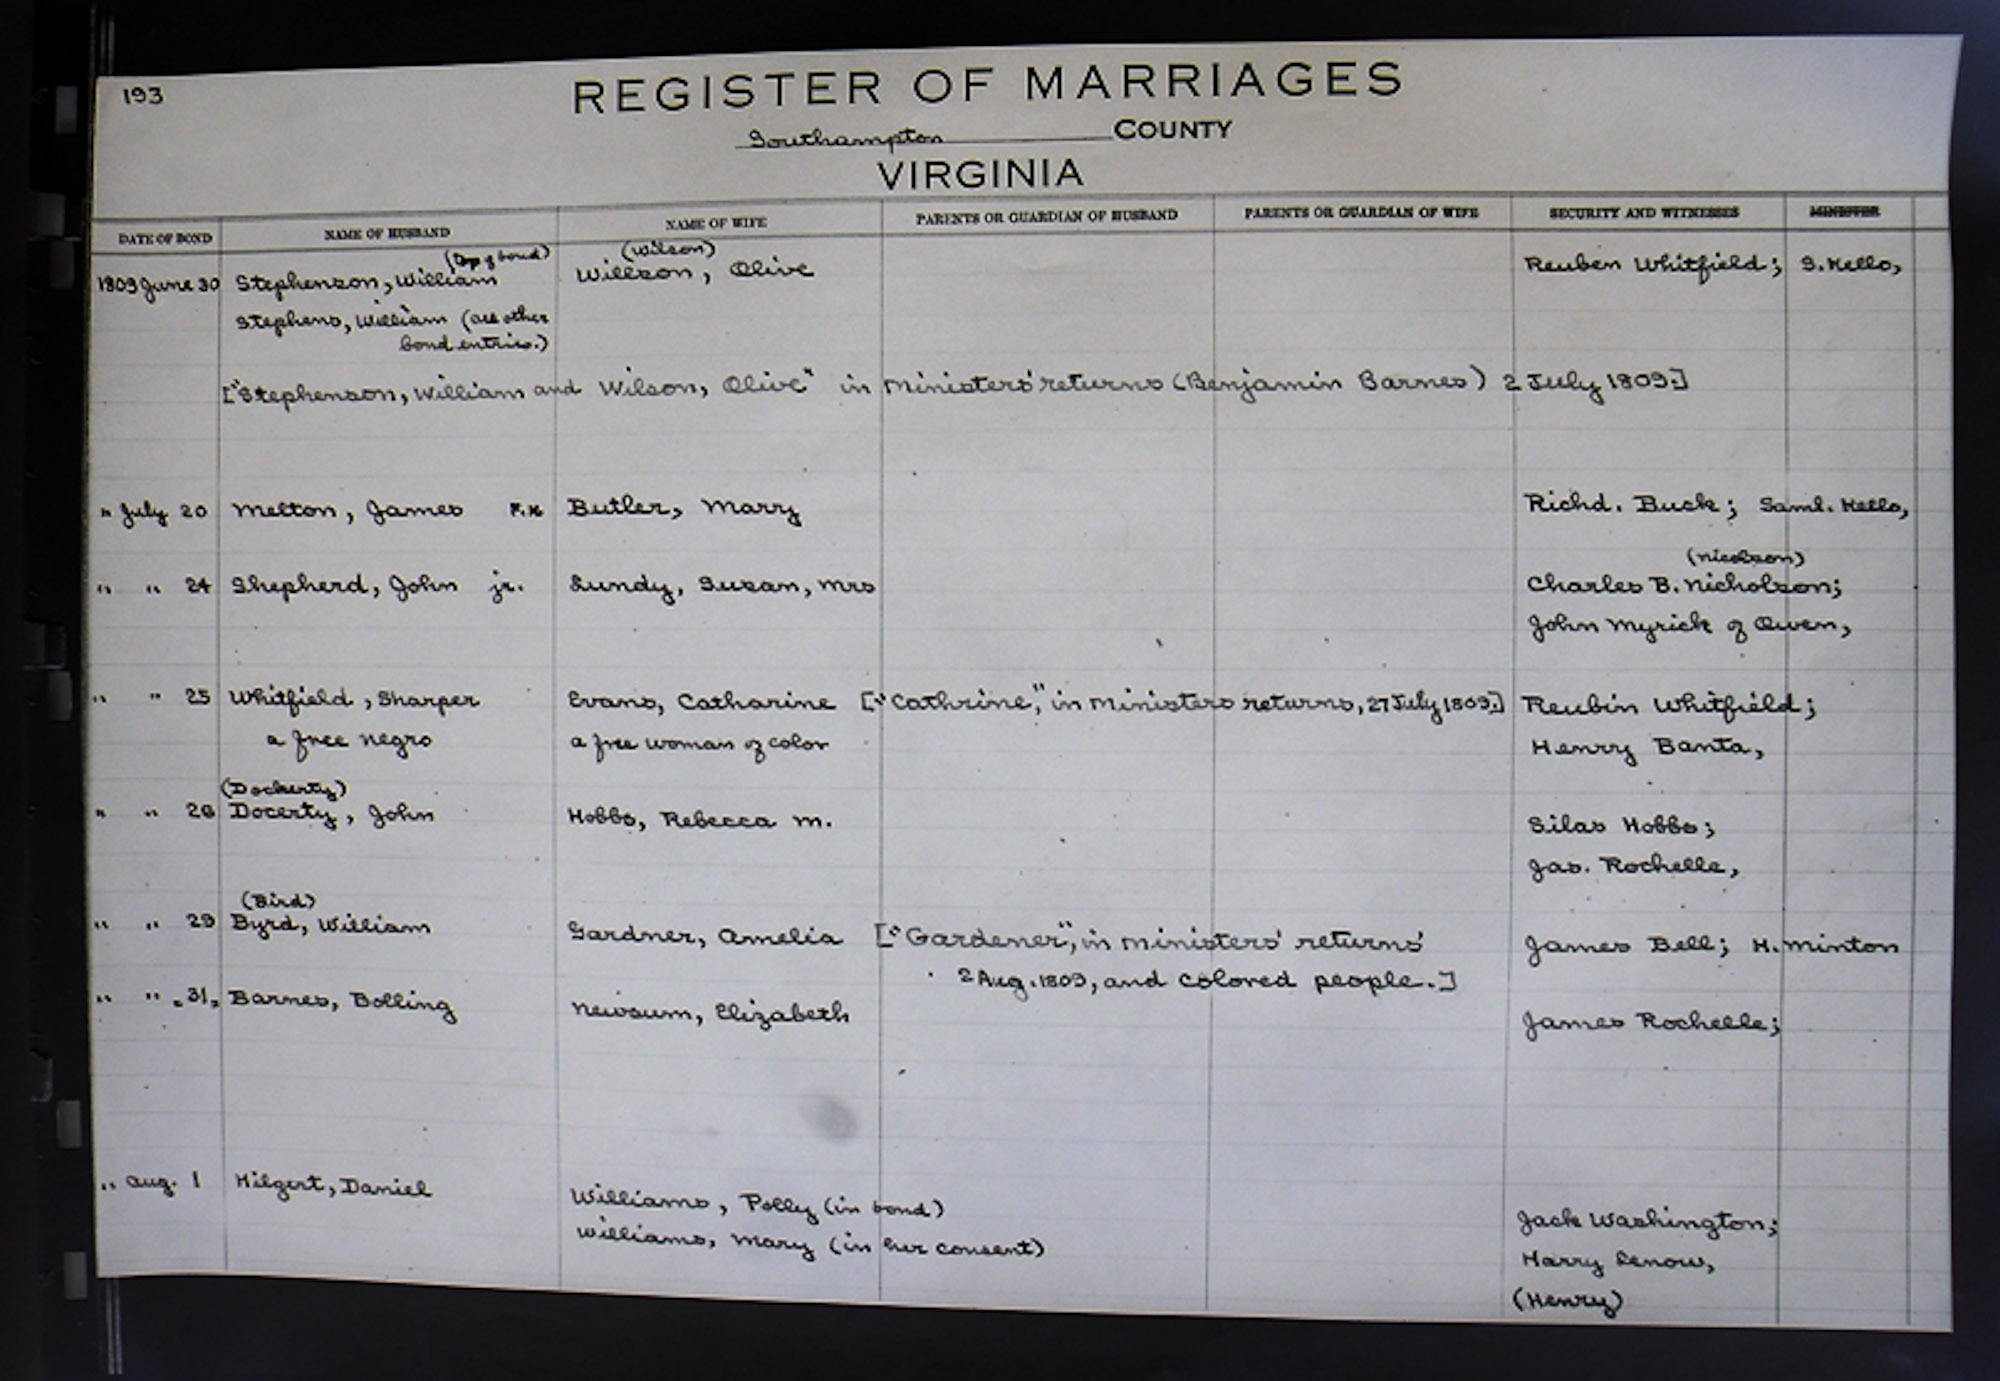 193
REGISTER OF MARRIAGES
Southampton COUNTY
VIRGINIA
DATE OF BOND NAME OF HUSBAND NAME OF WIFE PARENTS OR GUARDIAN OF HUSBAND PARENTS OR GUARDIAN OF WIFE SECURITY AND WITNESSES MINISTER
(Top of bond) (Wilson)
1809 June 30 Stephenson, William Willson, Olive Reuben Whitfield; S. Kello,
Stephens, William (all other
bond entries.)
["Stephenson, William and Wilson, Olive" in Ministers' returns (Benjamin Barnes) 2 July 1809.]
" July 20 Melton, James Butler, Mary Richd. Buck; Saml. Kello,
(Nicolson)
" " 24 Shepherd, John jr. Lundy, Susan, Mrs Charles B. Nicholson;
John Myrick of Owen,
" " 25 Whitfield, Sharper Evans, Catharine ["Cathrine", in Ministers returns, 27 July 1809.] Reubin Whitfield;
a free negro a free woman of color Henry Banta,
(Dockerty)
" " 28 Docerty, John Hobbs, Rebecca M. Silas Hobbs;
Jas. Rochelle,
(Bird)
" " 29 Byrd, William Gardner, Amelia ["Gardener", in Ministers' returns' James Bell; H. Minton
2 Aug. 1809, and colored people.]
" " 31, Barnes, Bolling Newsum, Elizabeth James Rochelle;
" Aug. 1 Hilgert, Daniel Williams, Polly (in bond) Jack Washington;
Williams, Mary (in her consent) Harry Lenow,
(Henry)